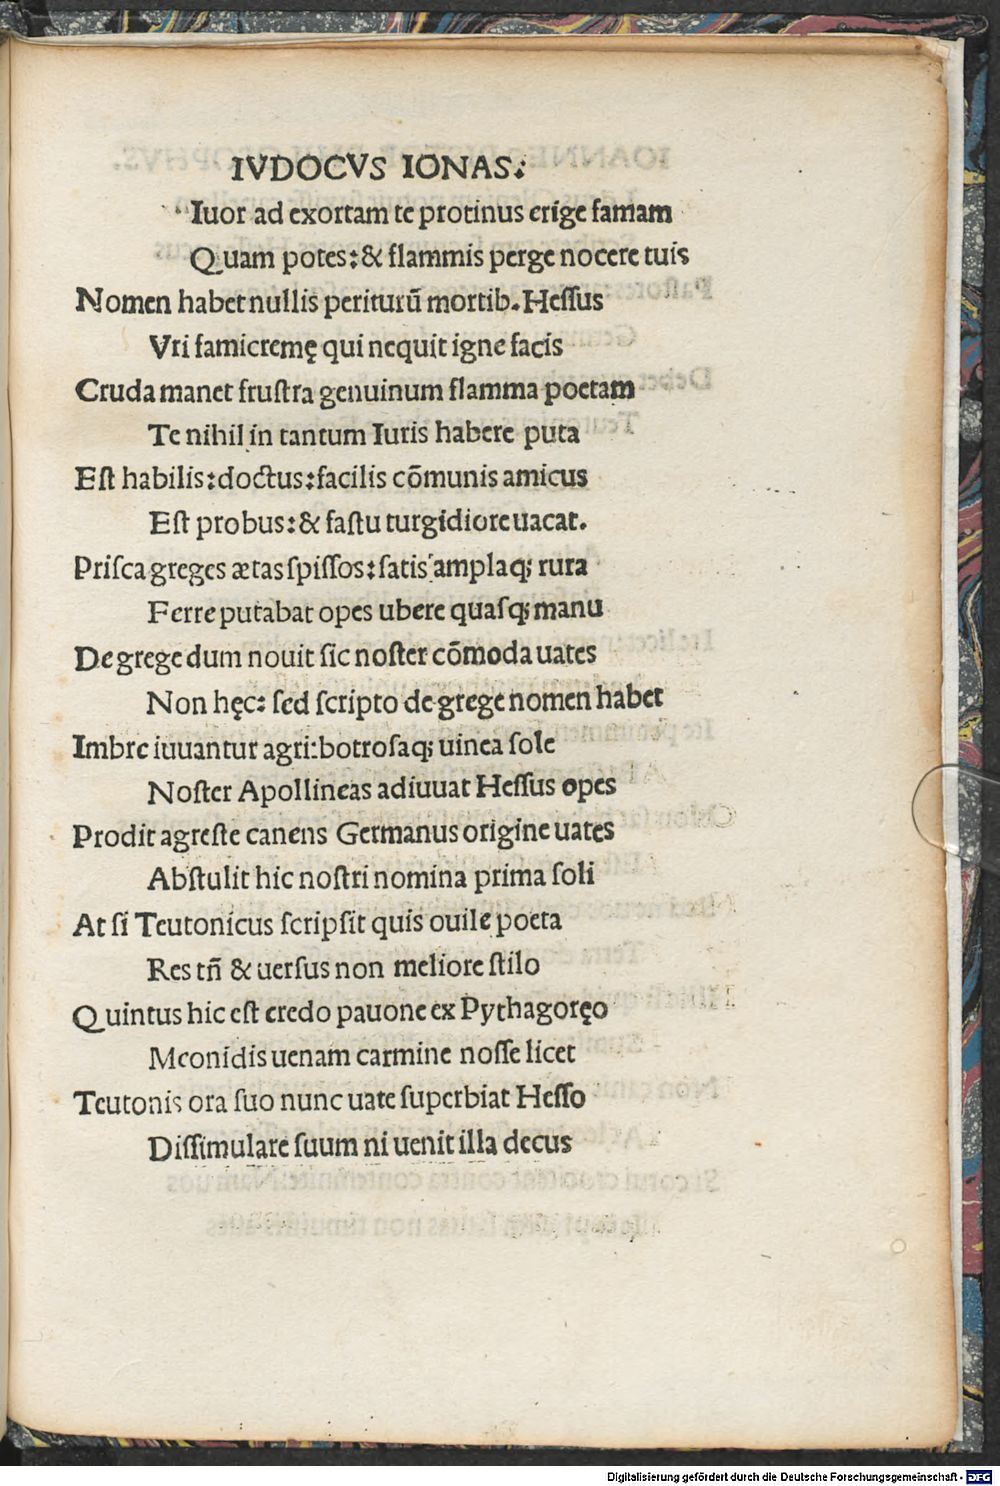 IVDOCVS IONAS:
Iuor ad exortam te protinus erige famam
Quam potes: & flammis perge nocere tuis
Nomen habet nullis periturū mortib. Hessus
Vri famicremę qui nequit igne facis
Cruda manet frustra genuinum flamma poetam
Te nihil in tantum Iuris habere puta
Est habilis: doctus: facilis cōmunis amicus
Est probus: & fastu turgidiore uacat.
Prisca greges ætas spissos: satis amplaq; rura
Ferre putabat opes ubere quasq; manu
De grege dum nouit sic noster cōmoda uates
Non hęc: sed scripto de grege nomen habet
Imbre iuuantur agri: botrosaq; uinea sole
Noster Apollineas adiuuat Hessus opes
Prodit agreste canens Germanus origine uates
Abstulit hic nostri nomina prima soli
At si Teutonicus scripsit quis ouile poeta
Res tñ & uersus non meliore stilo
Quintus hic est credo pauone ex Pythagoręo
Meonidis uenam carmine nosse licet
Teutonis ora suo nunc uate superbiat Hesso
Dissimulare suum ni uenit illa decus
Digitalisierung gefördert durch die Deutsche Forschungsgemeinschaft - DFG